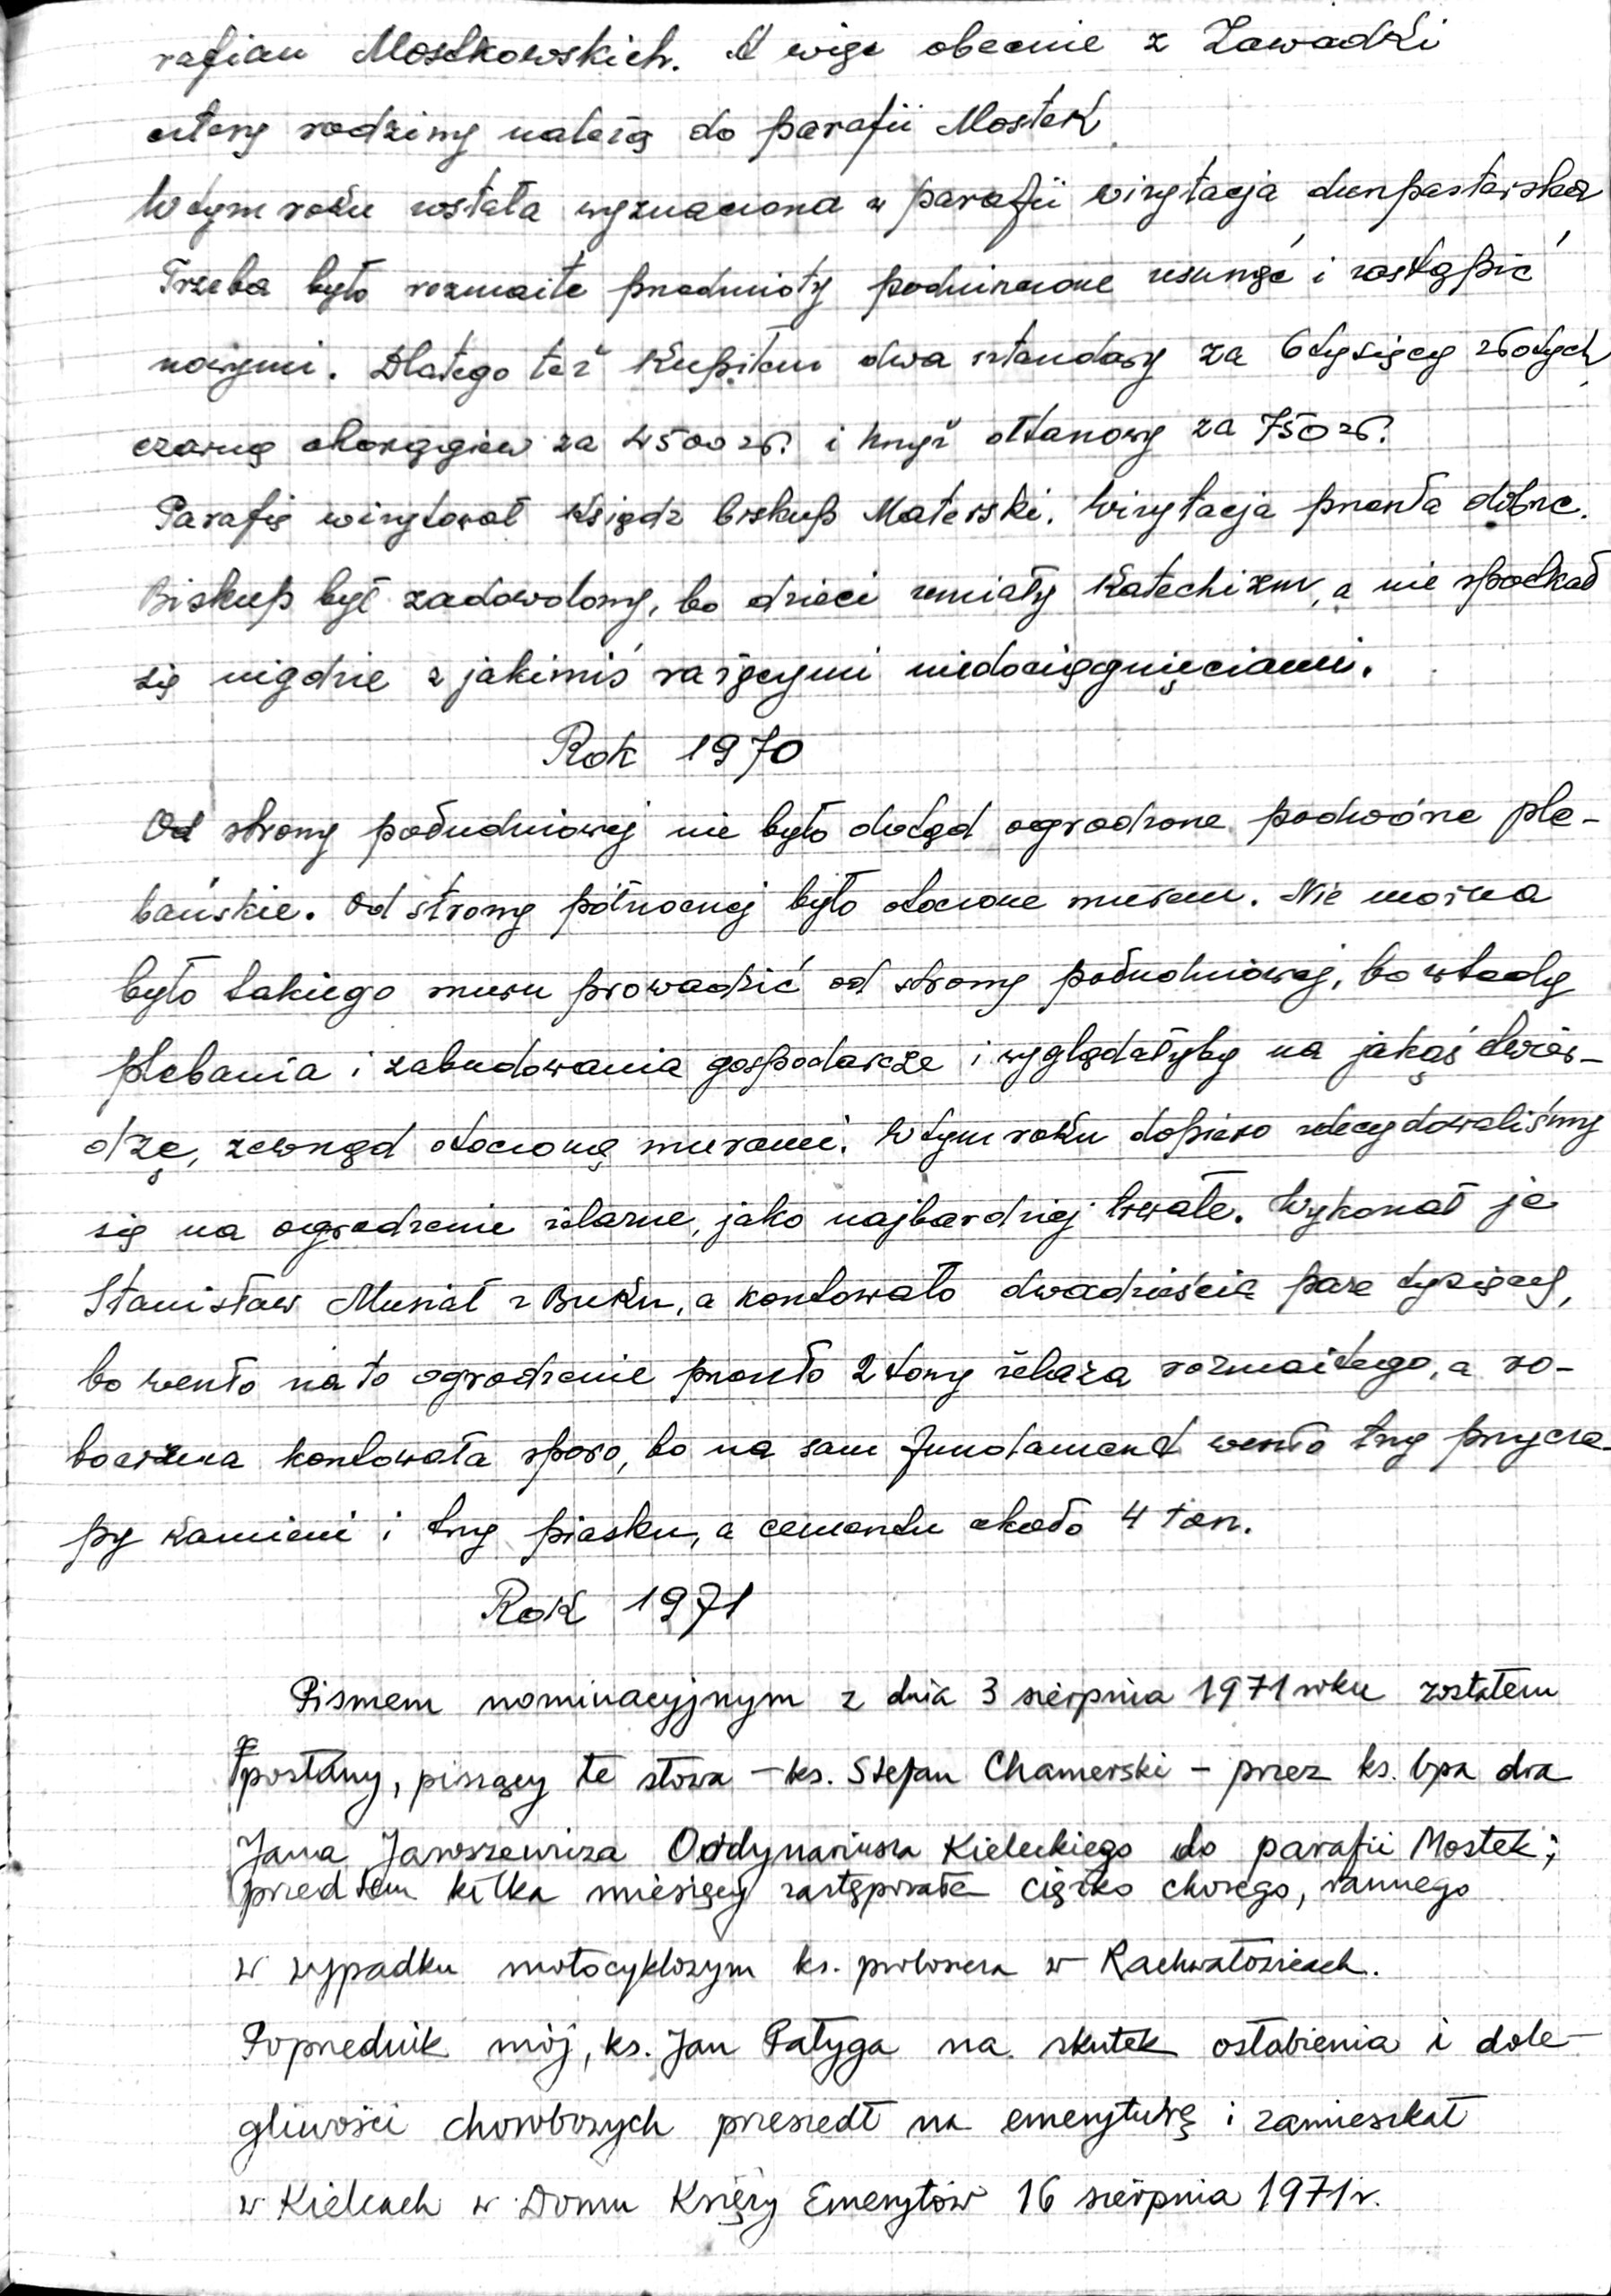 rafian Mostkowskich. A więc obecnie z Zawadki
cztery rodziny należą do parafii Mostek.
W tym roku została wyznaczona w parafii wizytacja duszpasterska
Trzeba było rozmaite przedmioty podniszczone usunąć i zastąpić
nowymi. Dlatego też kupiłem dwa sztandary za 6 tysięcy złotych
czarną chorągiew za 4500 zł. i krzyż ołtarzowy za 750 zł.
Parafię wizytował ksiądz biskup Materski. Wizytacja przeszła dobrze.
Biskup był zadowolony, bo dzieci umiały katechizm, a nie spotkał
się nigdzie z jakimiś rażącymi niedociągnięciami.
Rok 1970
Od strony południowej nie było dotąd ogrodzone podwórze ple-
bańskie. Od strony północnej było otoczone murem. Nie można
było takiego muru prowadzić od strony południowej, bo wtedy
plebania i zabudowania gospodarcze i wyglądałyby na jakąś twier-
dzę, zewsząd otoczoną murami. W tym roku dopiero zdecydowaliśmy
się na ogrodzenie żelazne, jako najbardziej trwałe. Wykonał je
Stanisław Musiał z Buku, a kosztowało dwadzieścia parę tysięcy,
bo weszło na to ogrodzenie przeszło 2 tony żelaza rozmaitego, a ro-
bocizna kosztowała sporo, bo na sam fundament weszło trzy przycze-
py kamieni i trzy piasku, a cementu około 4 ton.
Rok 1971
Pismem nominacyjnym z dnia 3 sierpnia 1971 roku zostałem
posłany, piszący te słowa – ks. Stefan Chamerski – przez ks. bpa dra
Jana Jaroszewicza Ordynariusza Kieleckiego do parafii Mostek;
przedtem kilka miesięcy zastępowałem ciężko chorego, rannego
w wypadku motocyklowym ks. proboszcza w Rachwałowicach.
Poprzednik mój, ks. Jan Pałyga na skutek osłabienia i dole-
gliwości chorobowych przeszedł na emeryturę i zamieszkał
w Kielcach w Domu Księży Emerytów 16 sierpnia 1971 r.